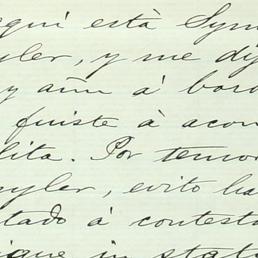 aqui està Sym
yler, y me dij
y aún á bord
fuiste à acom
lita. Por temor
uyler, evito ha
tado à contesta
sigue in statu